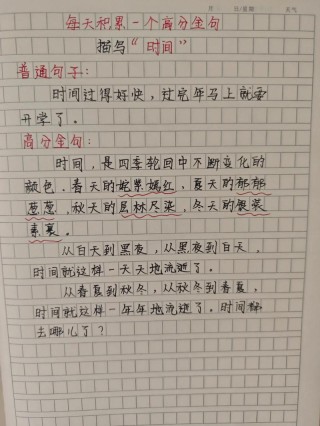 每天积累一个高分金句
描写"时间"
普通句子:
时间过得好快,过完年马上就要
开学了。
高分金句:
时间,是四季轮回中不断变化的
颜色.春天的姹紫嫣红,夏天的郁郁
葱葱.秋天的层林尽染,冬天的银装
素裹。
从白天到黑夜,从黑夜到白天,
时间就这样一天天地流逝了。
从春夏到秋冬,从秋冬到春夏,
时间就这样一年年地流逝了。时间都
去哪儿了?